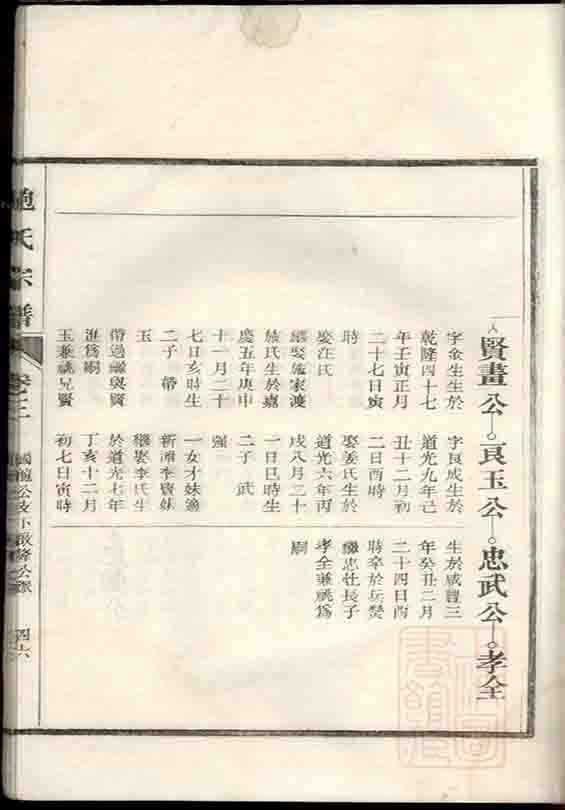 賢畫公 良玉公 忠武公 孝全
字金生生於
乾隆四十七
年壬寅正月
二十七日寅
時
娶汪氏
繼娶施家渡
施氏生於嘉
慶五年庚申
十一月二十
七日亥時生
二子 帶
玉
帶過繼與賢
進為嗣
玉兼祧兄賢
字良成生於
道光九年己
丑十二月初
二日酉時
娶姜氏生於
道光六年丙
戌八月二十
一日巳時生
二子 武
強
一女才妹適
新灘李寶妹
繼娶李氏生
於道光七年
丁亥十二月
初七日寅時
生於咸豐三
年癸丑二月
二十四日酉
時卒於兵燹
繼忠仕長子
孝全兼祧為
嗣
氏宗譜
卷之三
公支下啟
公派
四六